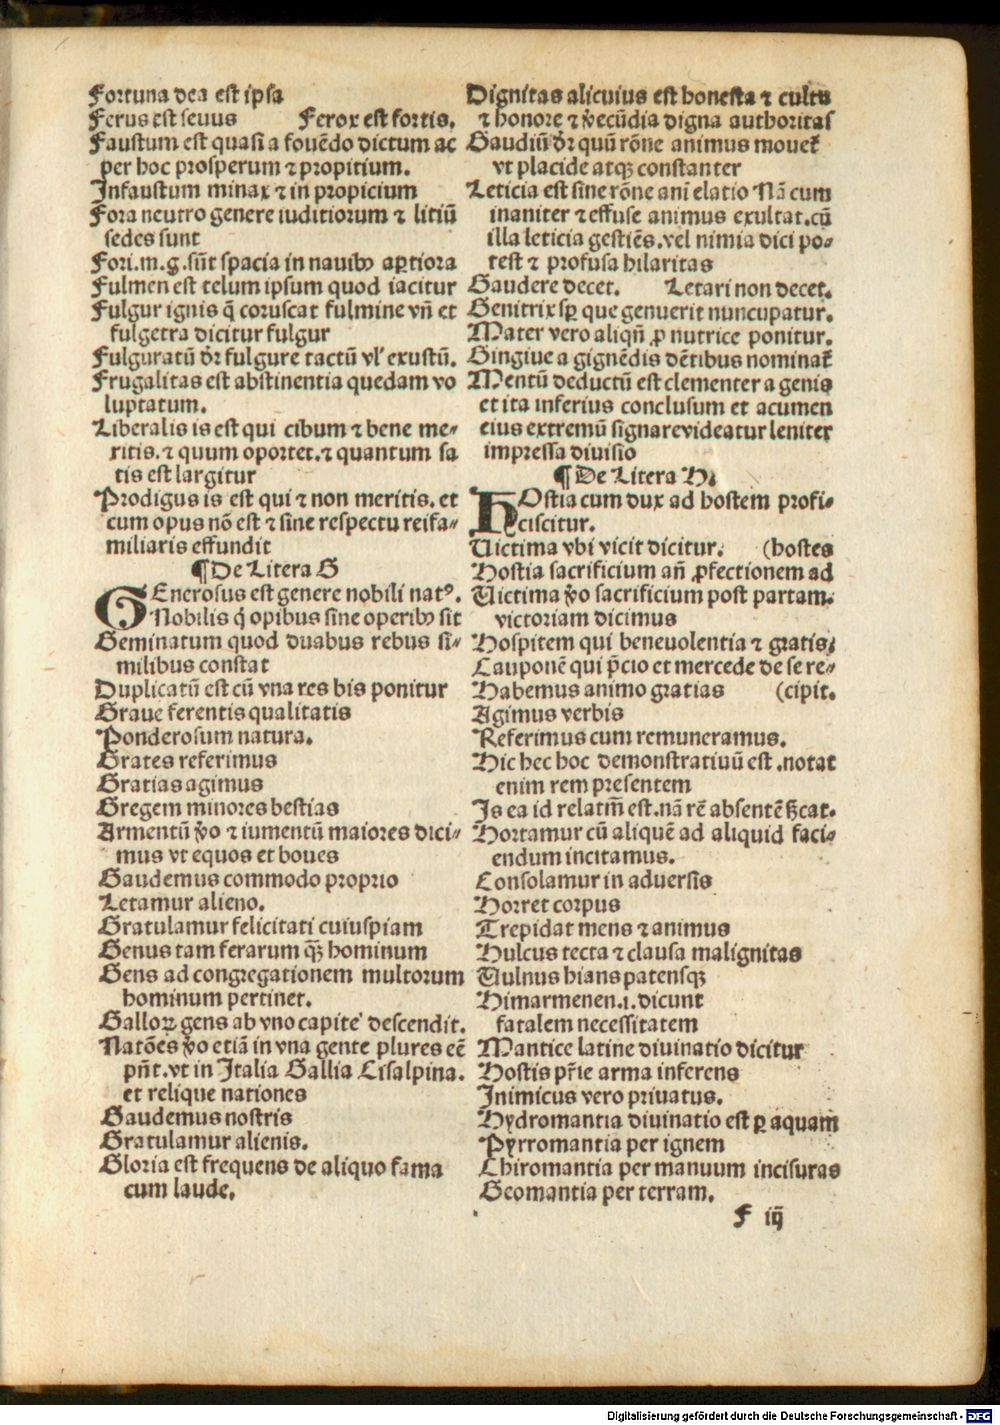 Fortuna dea est ipsa
Ferus est seuus Ferox est fortis.
Faustum est quasi a fouēdo dictum ac
per hoc prosperum ⁊ propitium.
Infaustum minax ⁊ in propicium
Fora neutro genere iuditiorum ⁊ litiū
sedes sunt
Fori.m.g.sūt spacia in nauibꝰ aꝑtiora
Fulmen est telum ipsum quod iacitur
Fulgur ignis q̄ coruscat fulmine vn̄ et
fulgetra dicitur fulgur
Fulguratū dr̄ fulgure tactū vl' exustū.
Frugalitas est abstinentia quedam vo
luptatum.
Liberalis is est qui cibum ⁊ bene me⸗
ritis.⁊ quum oportet.⁊ quantum sa
tis est largitur
Prodigus is est qui ⁊ non meritis.et
cum opus nō est ⁊ sine respectu reifa⸗
miliaris effundit
¶De Litera G
GEnerosus est genere nobili natꝰ.
Nobilis q̇ opibus sine operibꝰ sit
Geminatum quod duabus rebus si⸗
milibus constat
Duplicatū est cū vna res bis ponitur
Graue ferentis qualitatis
Ponderosum natura.
Grates referimus
Gratias agimus
Gregem minores bestias
Armentū v̊o ⁊ iumentū maiores dici⸗
mus vt equos et boues
Gaudemus commodo proprio
Letamur alieno.
Gratulamur felicitati cuiuspiam
Genus tam ferarum qꝫ̄ hominum
Gens ad congregationem multorum
hominum pertinet.
Galloꝝ gens ab vno capite descendit.
Natōes v̊o etiā in vna gente plures eē
pn̄t.vt in Italia Gallia Cisalpina.
et relique nationes
Gaudemus nostris
Gratulamur alienis.
Gloria est frequens de aliquo fama
cum laude.
Dignitas alicuius est honesta ⁊ cultu
⁊ honore ⁊ v̊ecūdia digna authoritas
Gaudiū dr̄ quū rōne animus mouet᷑
vt placide atqꝫ constanter
Leticia est sine rōne ani elatio Nā cum
inaniter ⁊ effuse animus exultat.cū
illa leticia gestiēs.vel nimia dici po⸗
test ⁊ profusa hilaritas
Gaudere decet. Letari non decet.
Genitrix sꝑ que genuerit nuncupatur.
Mater vero aliqn̄ ꝓ nutrice ponitur.
Gingiue a gignēdis dētibus nominat᷑
Mentū deductū est clementer a genis
et ita inferius conclusum et acumen
eius extremū signare videatur leniter
impressa diuisio
¶De Litera H.
HOstia cum dux ad hostem profi⸗
ciscitur.
Uictima vbi vicit dicitur. (hostes
Hostia sacrificium an̄ ꝓfectionem ad
Uictima v̊o sacrificium post partam
victoriam dicimus
Hospitem qui beneuolentia ⁊ gratis;
Cauponē qui p̄cio et mercede de se re⸗
Habemus animo gratias (cipit.
Agimus verbis
Referimus cum remuneramus.
Hic hec hoc demonstratiuū est .notat
enim rem presentem
Is ea id relatm̄ est.nā rē absentē ẞcat.
Hortamur cū aliquē ad aliquid faci⸗
endum incitamus.
Consolamur in aduersis
Horret corpus
Trepidat mens ⁊ animus
Hulcus tecta ⁊ clausa malignitas
Uulnus hians patensqꝫ
Himarmenen.i.dicunt
fatalem necessitatem
Mantice latine diuinatio dicitur
Hostis pr̄ie arma inferens
Inimicus vero priuatus.
Hydromantia diuinatio est ꝑ aquam
Pyrromantia per ignem
Chiromantia per manuum incisuras
Geomantia per terram.
F iij
Digitalisierung gefördert durch die Deutsche Forschungsgemeinschaft - DFG